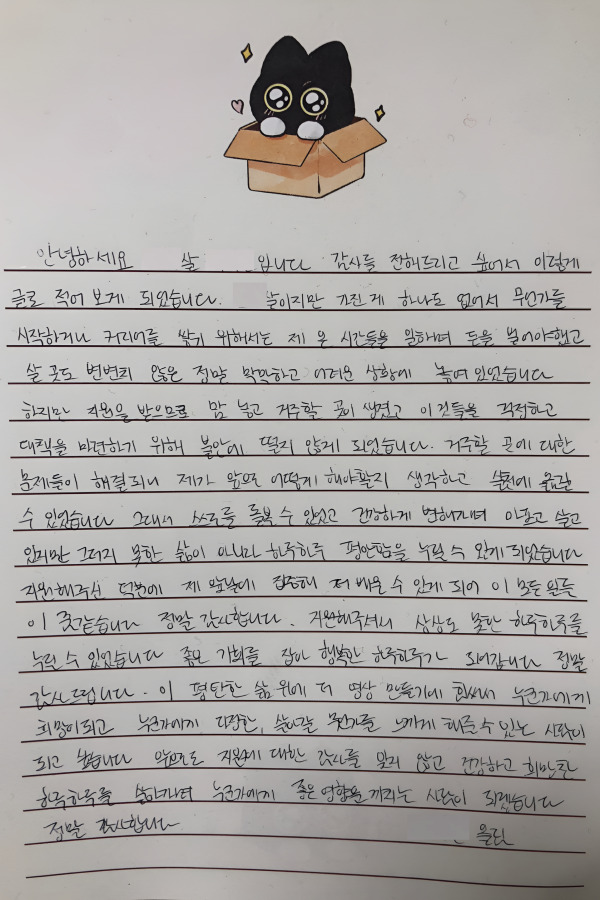 안녕하세요 살 입니다 감사를 전해드리고 싶어서 이렇게
글로 적어 보게 되었습니다. 살이지만 가진 게 하나도 없어서 무언가를
시작하거나 커리어를 쌓기 위해서는 제 온 시간들을 일하며 돈을 벌어야했고
살 곳도 변변치 않은 정말 막막하고 어려운 상황에 놓여있었습니다
하지만 지원을 받으므로 맘 놓고 거주할 곳이 생겼고 이것들을 걱정하고
대책을 마련하기 위해 불안에 떨지 않게 되었습니다. 거주할 곳에 대한
문제들이 해결되니 제가 앞으로 어떻게 해야할지 생각하고 실천에 옮길
수 있었습니다 그래서 스스로를 돌볼 수 있었고 건강하게 변해가며 아프고 살고
있지만 그러지 못한 삶이 아니라 하루하루 평안함을 누릴 수 있게 되었습니다
지원해주신 덕분에 제 앞날에 집중해 더 배울 수 있게 되어 이 모든 일들
이 꿈같습니다 정말 감사합니다. 지원해주셔서 상상도 못한 하루하루를
누릴 수 있었습니다 좋은 기회를 잡아 행복한 하루하루가 되어갑니다 정말
감사드립니다. 이 평탄한 삶 위에 더 영상 만들기에 힘써서 누군가에게
희망이되고 누군가에게 다정한, 살아갈 무언가를 느끼게 해줄 수 있는 사람이
되고 싶습니다 앞으로도 지원에 대한 감사를 잊지 않고 건강하고 희망찬
하루하루를 살아가며 누군가에게 좋은영향을 끼치는 사람이 되겠습니다
정말 감사합니다
올림